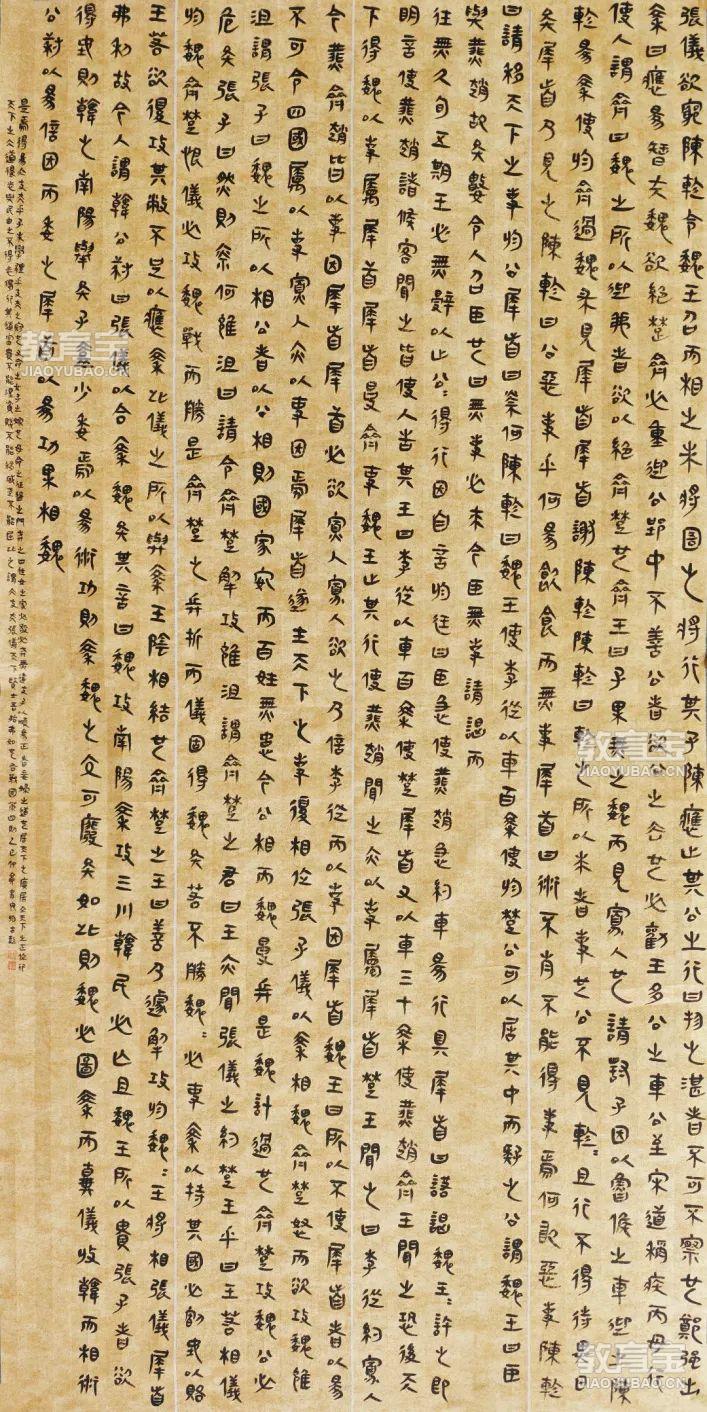 張儀欲窮陳軫令魏王召而相之來將圄之將行其子陳應止其公之行曰物之湛者不可不察也鄭彊出
秦曰應為智夫魏欲絕楚齊必重迎公郢中不善公者欲公之去也必勸王多公之車公至宋道稱疾而毋行
使人謂齊曰魏之所以迎我者欲以絕齊楚也齊王曰子果無之魏而見寡人也請封子因以魯侯之車迎之陳
軫為秦使於齊過魏求見犀首犀首謝陳軫陳軫曰軫之所以來者事也公不見軫〻且行不得待異日
矣犀首乃見之陳軫曰公惡事乎何為飲食而無事犀首曰衍不肖不能得事焉何敢惡事陳軫
曰請移天下之事於公犀首曰奈何陳軫曰魏王使李從以車百乘使於楚公可以居其中而疑之公謂魏王曰臣
與燕趙故矣數令人召臣也曰無事必來今臣無事請謁而
往無久旬五期王必無辭以止公〻得行因自言於廷曰臣急使燕趙急約車為行具犀首曰諾謁魏王〻許之即
明言使燕趙諸侯客聞之皆使人告其王曰李從以車百乘使楚犀首又以車三十乘使燕趙齊王聞之恐後天
下得魏以事屬犀首犀首受齊事魏王止其行使燕趙聞之亦以事屬犀首楚王聞之曰李從約寡人
今燕齊趙皆以事因犀首犀首必欲寡人寡人欲之乃倍李從而以事因犀首魏王曰所以不使犀首者以為
不可令四國屬以事寡人亦以事因焉犀首遂主天下之事復相位張子儀以秦相魏齊楚怒而欲攻魏雍
沮謂張子曰魏之所以相公者以公相則國家安而百姓無患今公相而魏受兵是魏計過也齊楚攻魏公必
危矣張子曰然則奈何雍沮曰請令齊楚解攻雍沮謂齊楚之君曰王亦聞張儀之約楚王乎曰王若相儀
於魏齊楚恨儀必攻魏戰而勝是齊楚之兵折而儀固得魏矣若不勝魏〻必事秦以持其國必割地以賂
王若欲復攻其敝不足以應秦此儀之所以與秦王陰相結也齊楚之王曰善乃遽解攻於魏〻王將相張儀犀首
弗利故令人謂韓公叔曰張儀以合秦魏矣其言曰魏攻南陽秦攻三川韓氏必亡且魏王所以貴張子者欲
得地則韓之南陽舉矣子盍少委焉以為衍功則秦魏之交可廢矣如此則魏必圖秦而棄儀收韓而相衍
公叔以為信因而委之犀首以為功果相魏
是焉得為大丈夫乎子未學禮乎丈夫之冠也父命之女子之嫁也母命之往送之門戒之曰往之女家必敬必戒無違夫子以順為正者妾婦之道也居天下之廣居立天下之正位行
天下之大道得志與民由之不得志獨行其道富貴不能淫貧賤不能移威武不能屈此之謂大丈夫
教育宝
JIAOYUBAO.CN
教育宝
JIAOYUBAO.CN
教育宝
JIAOYUBAO.CN